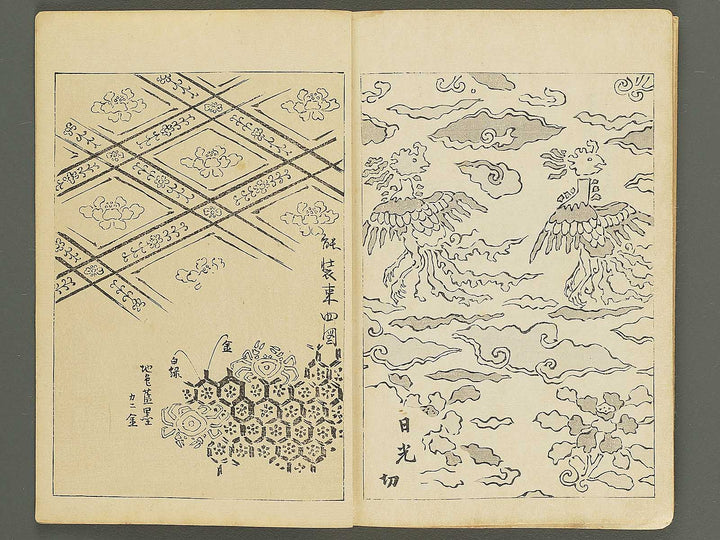 日光
切
能装束四圖
金
白緑
地色藍墨
カニ金